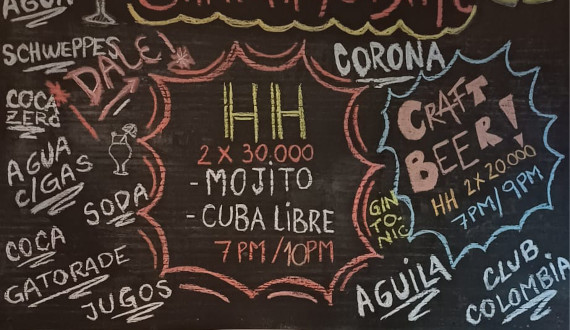 AGUA
SCHWEPPES
¡DALE!
COCA
ZERO
AGUA
C/GAS
SODA
COCA
GATORADE
JUGOS
HH
2 X 30.000
- MOJITO
- CUBA LIBRE
7 PM / 10PM
CORONA
CRAFT
BEER!
HH 2X20.000
7PM/9PM
GIN
TO-
NIC
AGUILA
CLUB
COLOMBIA